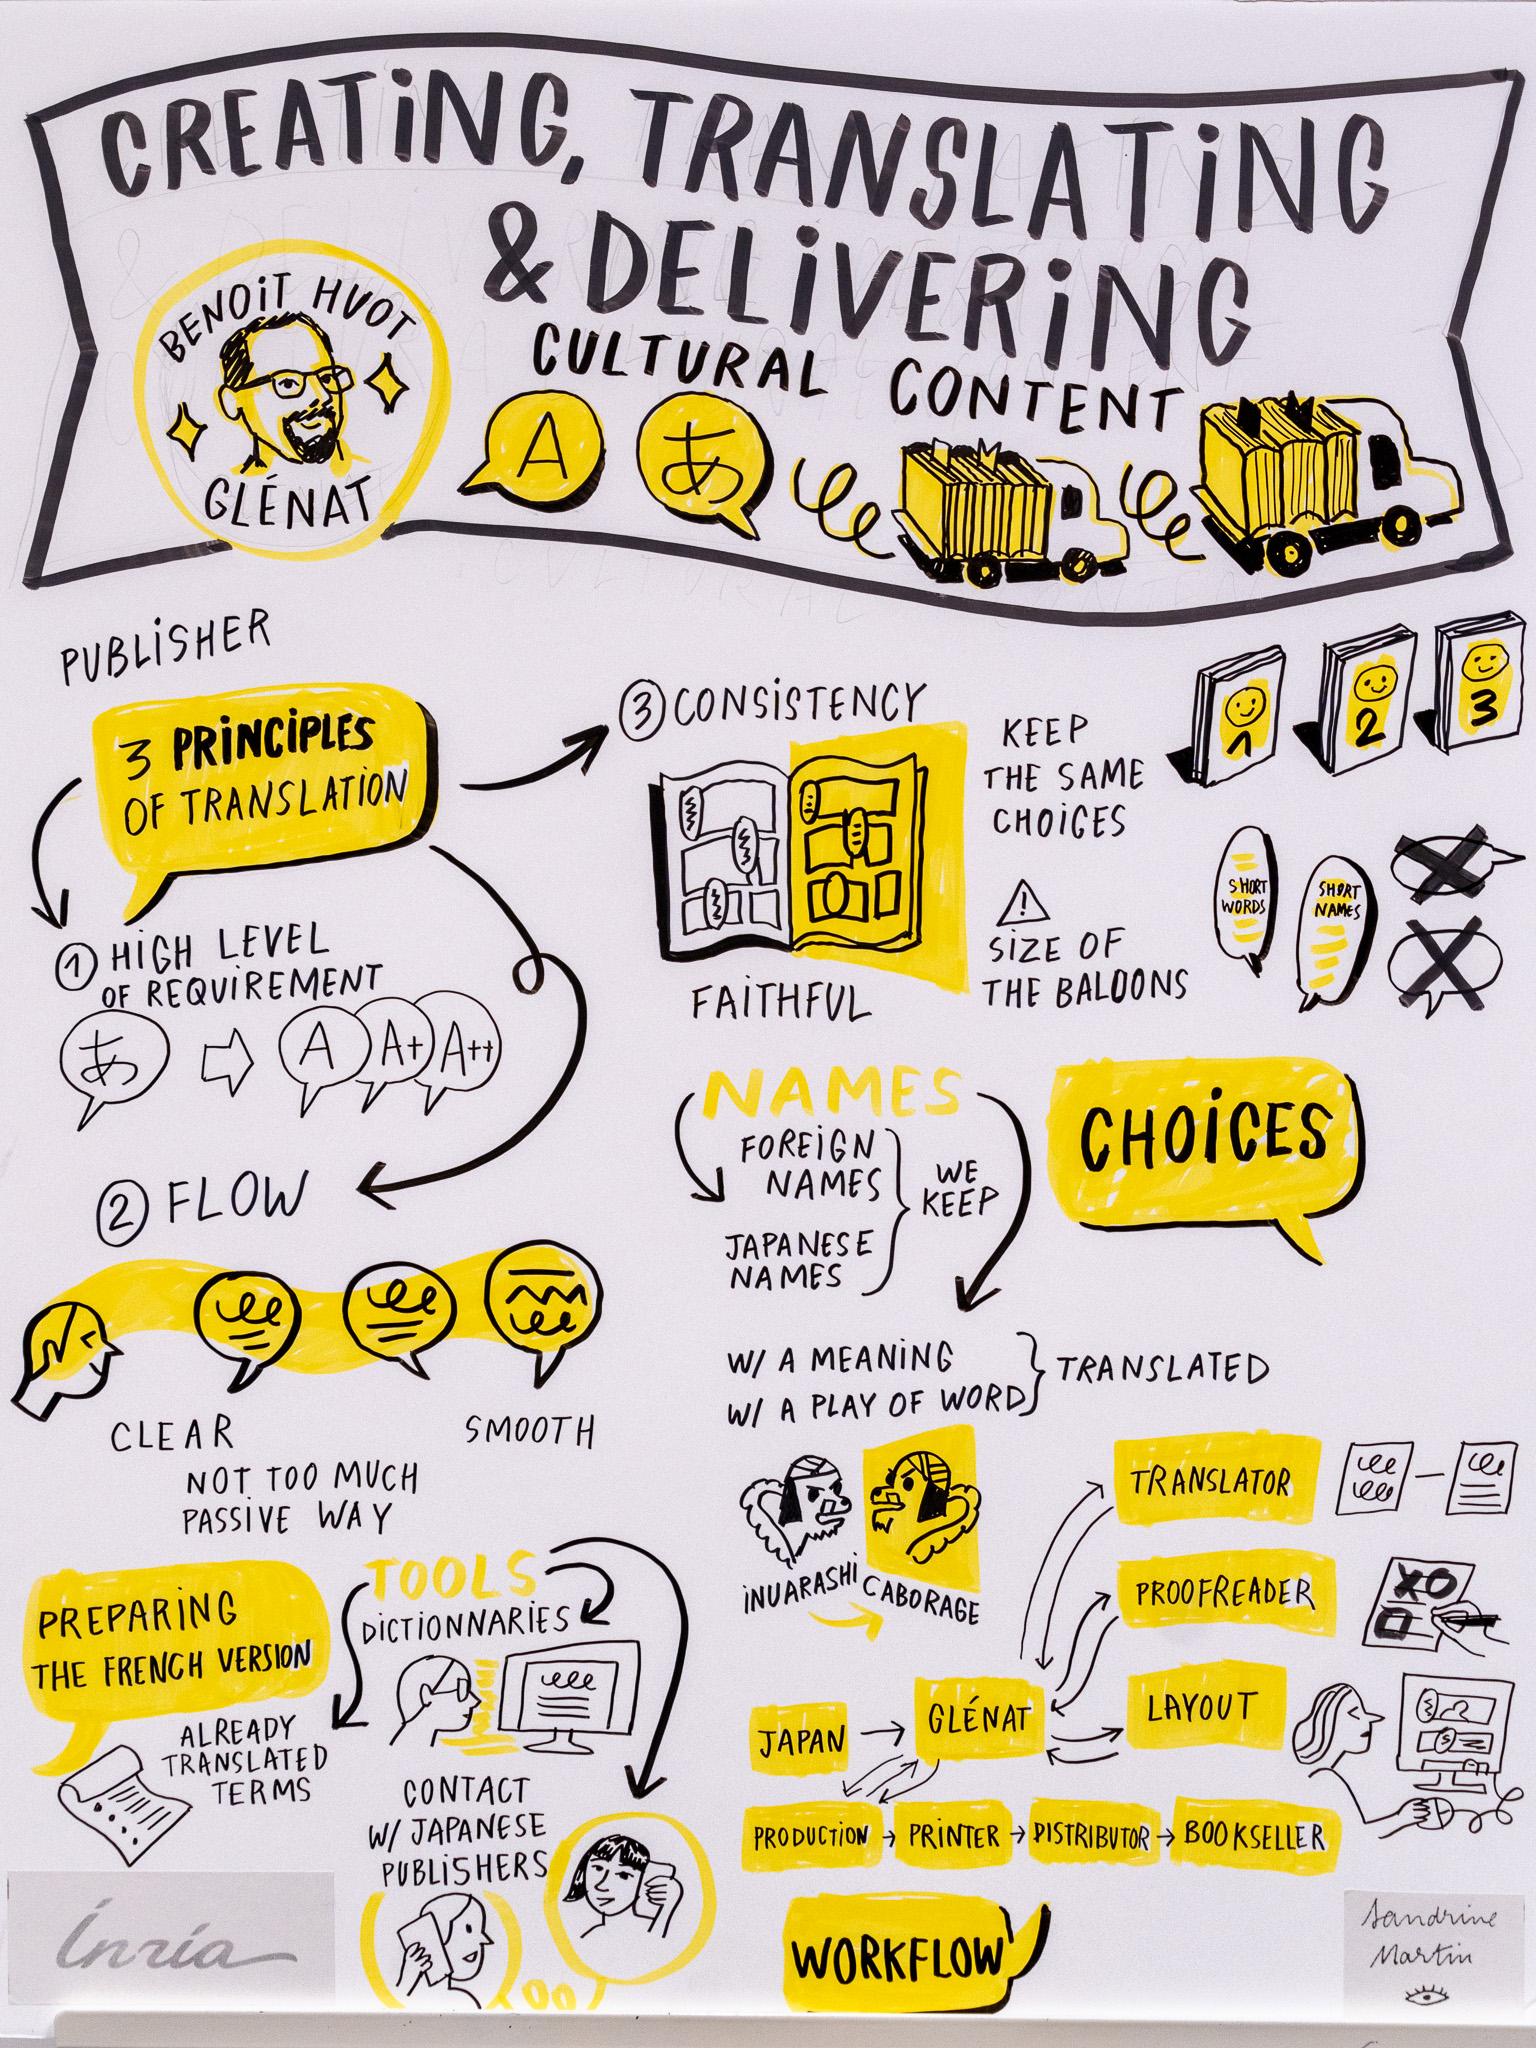 CREATING, TRANSLATING
& DELIVERING
CULTURAL CONTENT
BENOIT HUOT
GLÉNAT
A
あ
PUBLISHER
3 PRINCIPLES
OF TRANSLATION
1 HIGH LEVEL
OF REQUIREMENT
あ
A
A+
A++
2 FLOW
CLEAR
SMOOTH
NOT TOO MUCH
PASSIVE WAY
3 CONSISTENCY
FAITHFUL
KEEP
THE SAME
CHOICES
1
2
3
!
SIZE OF
THE BALOONS
SHORT
WORDS
SHORT
NAMES
CHOICES
NAMES
FOREIGN
NAMES
JAPANESE
NAMES
WE
KEEP
W/ A MEANING
W/ A PLAY OF WORD
TRANSLATED
INUARASHI
CABORAGE
PREPARING
THE FRENCH VERSION
TOOLS
DICTIONNARIES
ALREADY
TRANSLATED
TERMS
CONTACT
W/ JAPANESE
PUBLISHERS
TRANSLATOR
PROOFREADER
LAYOUT
JAPAN
GLÉNAT
PRODUCTION
PRINTER
DISTRIBUTOR
BOOKSELLER
WORKFLOW
Inria
Sandrine
Martin